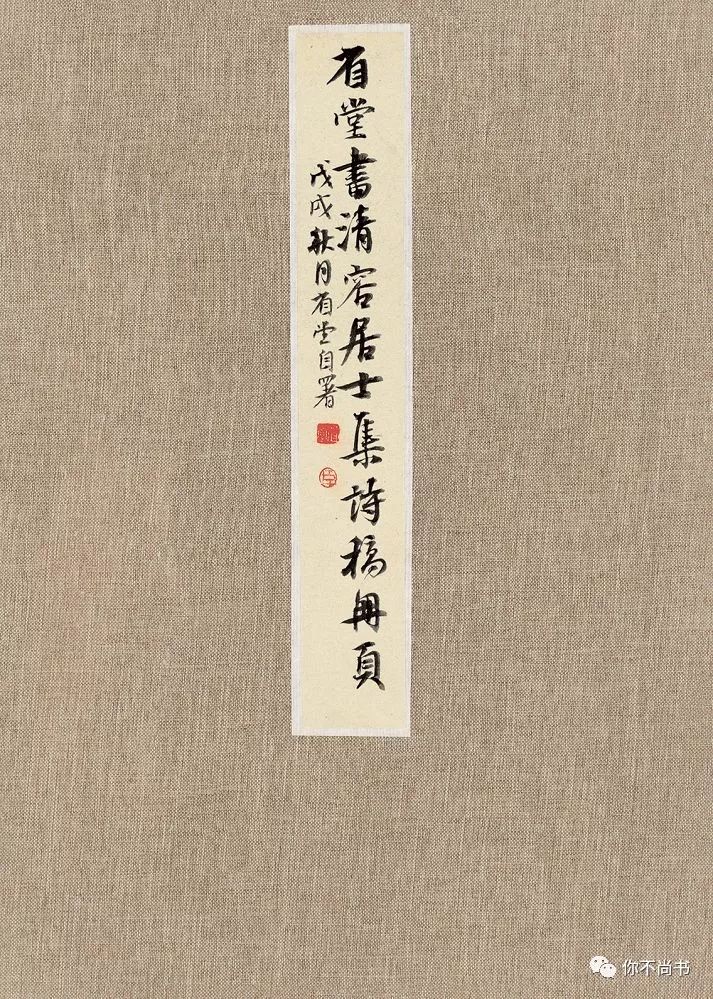 有堂書清容居士集詩稿冊頁
戊戌秋月有堂自署
你不尚书